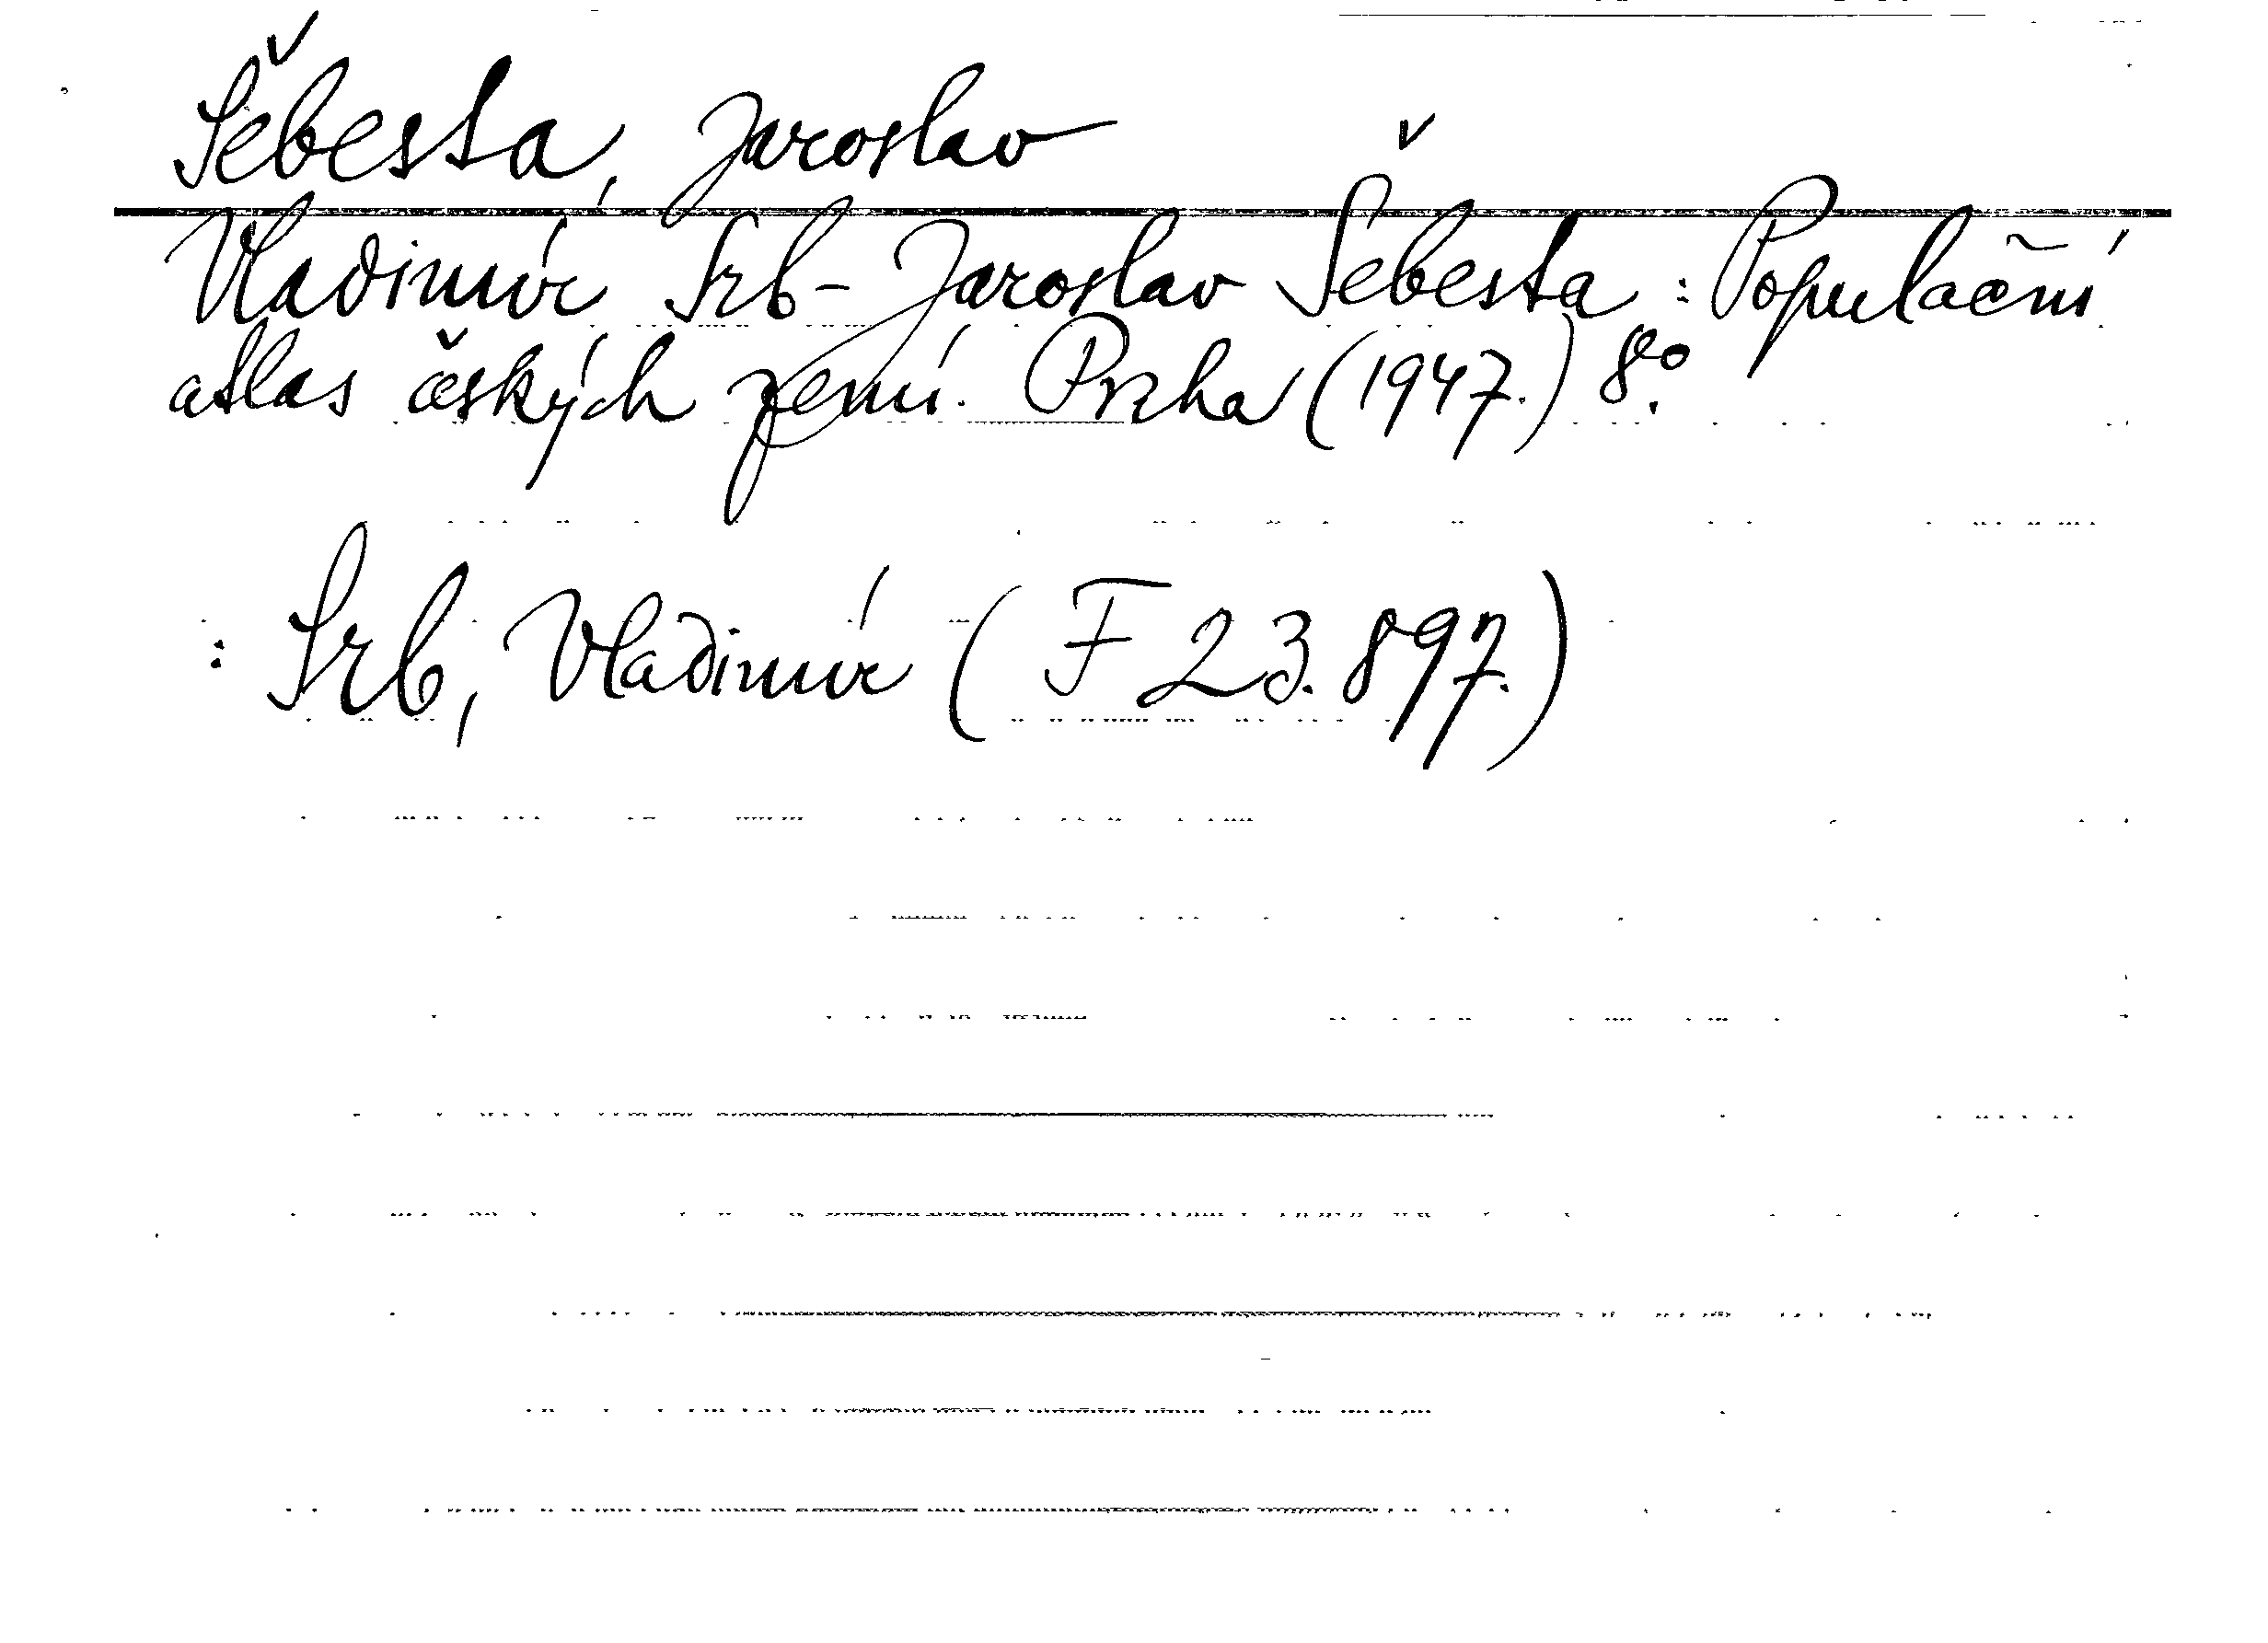 Šebesta, Jaroslav
Vladimír Srb - Jaroslav Šebesta : Populační
atlas českých zemí. Praha (1947.) 8°.
: Srb, Vladimír ( F 23.897.)